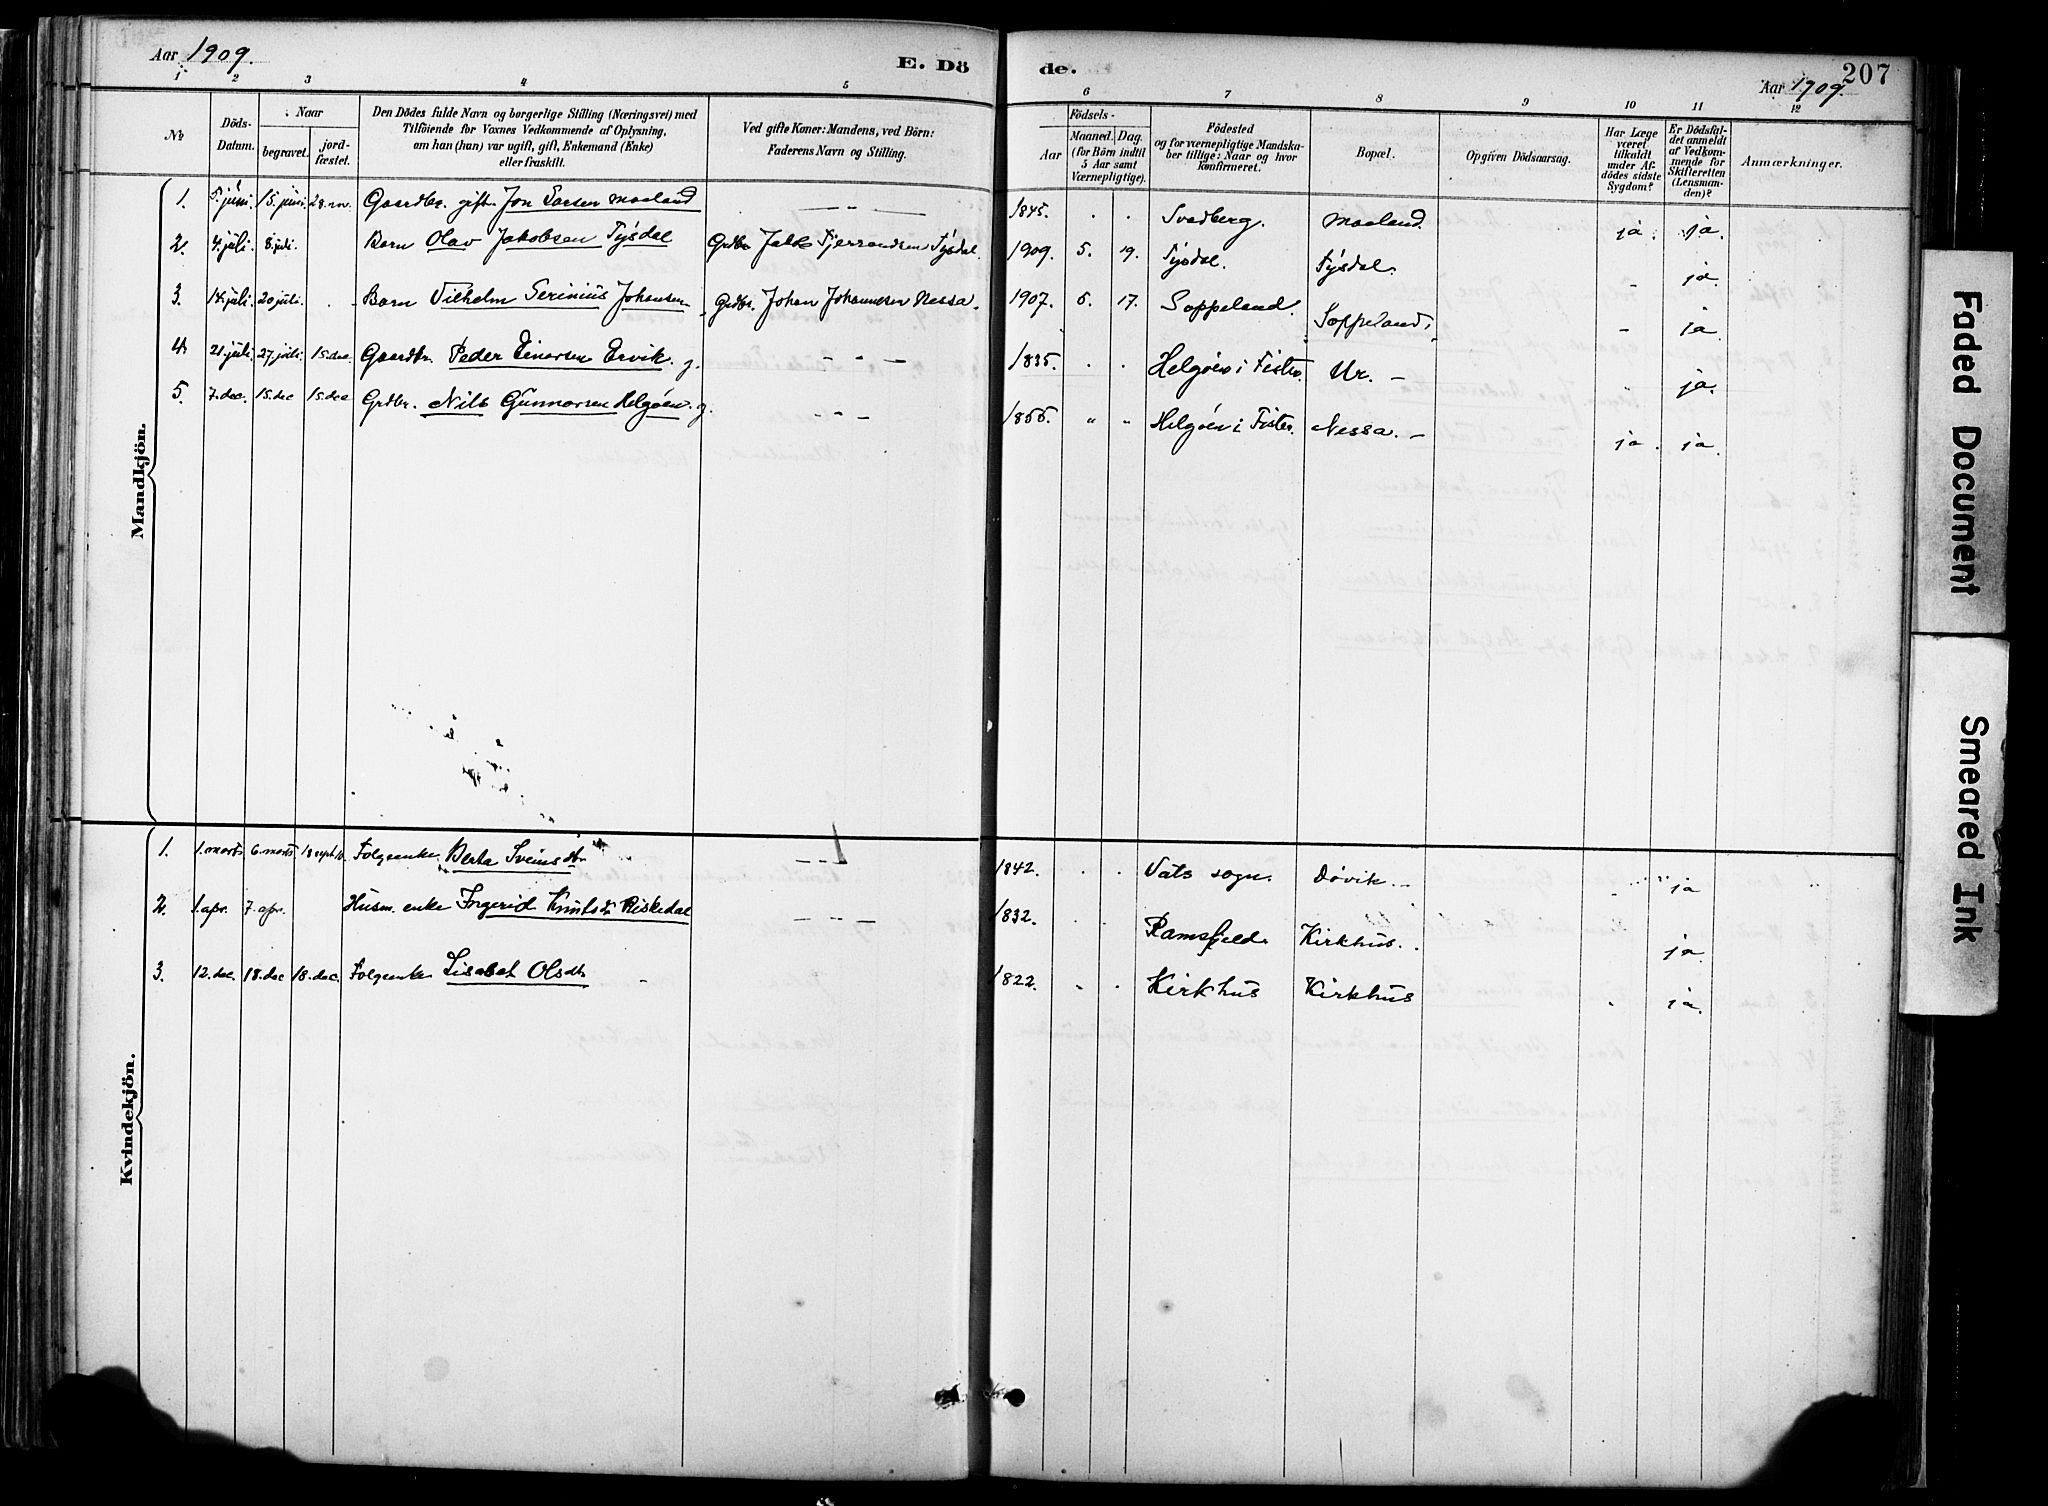 Aar 1909. E. Dö de. Aar 1909. 207
1 2 3 4 5 6 7 8 9 10 11 12
No
Döds-Datum.
Naar
begravet.
jord-fæstet.
Den Dödes fulde Navn og borgerlige Stilling (Næringsvei) med
Tilföiende for Voxnes Vedkommende af Oplysning,
om han (hun) var ugift, gift, Enkemand (Enke)
eller fraskilt.
Ved gifte Koner: Mandens, ved Börn:
Faderens Navn og Stilling.
Födsels-
Aar
Maaned. Dag.
(for Börn indtil
5 Aar samt
Værnepligtige).
Födested
og for værnepligtige Mandska-
ber tillige: Naar og hvor
konfirmeret.
Bopæl.
Opgiven Dödsaarsag.
Har Læge
været
tilkaldt
under Af-
dödes sidste
Sygdom?
Er Dödsfal-
det anmeldt
af Vedkom-
mende for
Skifteretten
(Lensman-
den)?
Anmærkninger.
Mandkjön.
1. 5. juni 15. juni 28. Gaardbr. gift Jon Larsen Maaland - - - 1845. . . Svadberg. Maaland. ja. ja.
2. 4. juli. 8. juli. Barn Olav Jakobsen Tysdal Grdbr. Jakob Tysdal. 1909. 5. 19. Tysdal. Tysdal. ja.
3. 14. juli 20 juli. Barn Vilhelm Serinius Johansen Grdbr. Johan Johannesen Nessa. 1907. 17. Soppeland. Soppeland. - ja.
4. 21. juli. 27. juli. 15. dec. Gaardbr. Peder Einarsen Ervik. g. - - - 1835. . . Helgöen i Fister. Ur. - ja.
5. 7. dec. 15. dec 15. dec Grdbr. Nils Gunnarsen Helgöen. g. - - - 1855. " " Helgöen i Fister. Nessa. - ja. ja.
Kvindekjön.
1. 1. marts 6. marts 18 sept. Folgeenke. Berta Sveinsdtr - - - 1842. . . Vats sogn. Dövik. - ja
2. 1. apr. 7. apr. Husm. enke Ingerid Knutsdtr Riskedal - - - 1832. . . Ramsfjeld. Kirkhus. ja.
3. 12. dec. 18. dec 18. dec. Folgeenke Lisabet Olsdtr. - 1822. . . Kirkhus Kirkhus . ja.
Faded Document
Smeared Ink